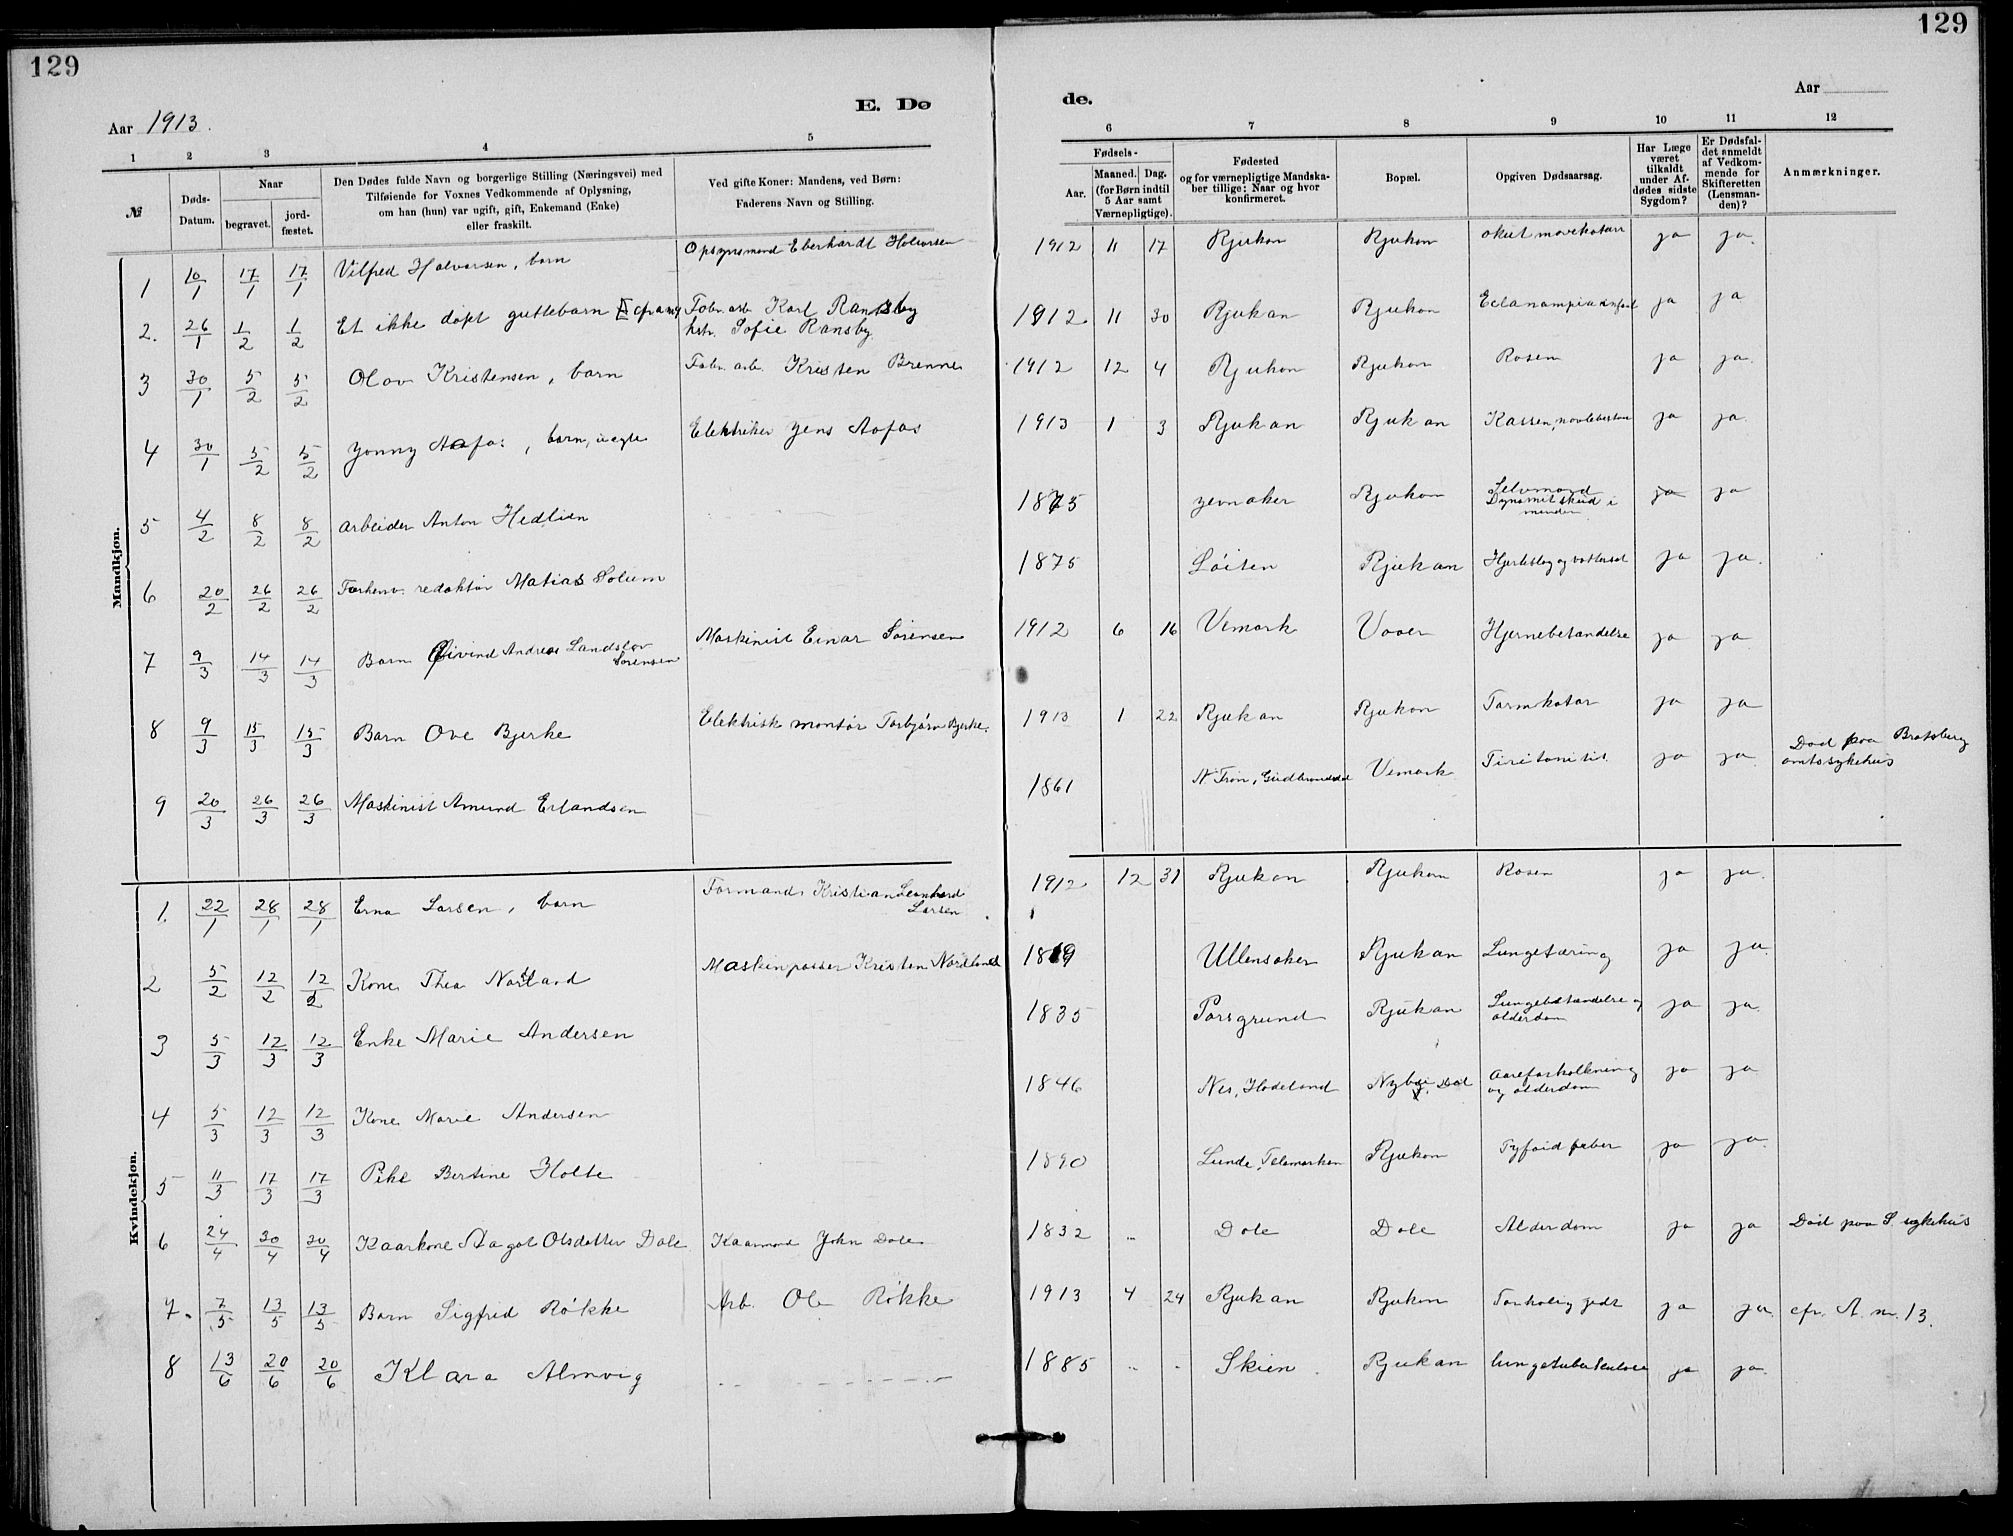 129
129
Aar 1913.
E. Dø
de.
Aar
1 2 3 4 5
6 7 8 9 10 11 12
№
Døds-Datum.
Naar
begravet.
jord-fæstet.
Den Dødes fulde Navn og borgerlige Stilling (Næringsvei) med
Tilføiende for Voxnes Vedkommende af Oplysning,
om han (hun) var ugift, gift, Enkemand (Enke)
eller fraskilt.
Ved gifte Koner: Mandens, ved Børn:
Faderens Navn og Stilling.
Fødsels-
Aar.
Maaned. Dag.
(for Børn indtil
5 Aar samt
Værnepligtige).
Fødested
og for værnepligtige Mandska-
ber tillige: Naar og hvor
konfirmeret.
Bopæl.
Opgiven Dødsaarsag.
Har Læge
været
tilkaldt
under Af-
dødes sidste
Sygdom?
Er Dødsfal-
det anmeldt
af Vedkom-
mende for
Skifteretten
(Lensman-
den)?
Anmærkninger.
Mandkjøn.
1 10/1 17/1 17/1 Vilfred Halvorsen, barn Opsynsmand Eberhardt Halvorsen 1912 11 17 Rjukan Rjukan akut mavekatarr ja ja.
2. 26/1 1/2 1/2 Et ikke døpt guttebarn Fabr. arb. Karl Ransby 1912. 11 30 Rjukan Rjukan ja ja
hstr. Sofie Ransby
3 30/1 5/2 5/2 Olav Kristensen, barn Fabr. arb. Kristen Brenne 1912 12 4 Rjukan Rjukan Rosen ja ja.
4 30/1 5/2 5/2 Jonny Aafos, barn, uegte Elektriker Jens Aafos 1913 1 3 Rjukan Rjukan ja ja.
5 4/2 8/2 8/2 Arbeider Anton Hedlien 1875 Jevnaker Rjukan Selvmord ja ja
Dynamitskud i
munden
6 20/2 26/2 26/2 Forhenv. redaktør Matias Solum 1875 Løiten Rjukan Hjerteslag og vattersot ja ja.
7 9/3 14/3 14/3 Barn Øivind Andreas Landslov Maskinist Einar Sørensen 1912 6 16 Vemork Vaaer Hjernebetændelse ja ja
Sørensen
8 9/3 15/3 15/3 Barn Ove Bjerke Elektrisk montør Torbjørn Bjerke. 1913 1 22 Rjukan Rjukan Tarmkatar ja ja
9 20/3 26/3 26/3 Maskinist Amund Erlandsen 1861 N. Fron, Gudbrandsdal Vemork Piritonitis ja ja. Død paa Bratsberg
amtssykehus
Kvindekjøn.
1. 22/1 28/1 28/1 Erna Larsen, barn Formand Kristian Leonhard 1912 12 31 Rjukan Rjukan Rosen ja ja.
Larsen
2 5/2 12/2 12/2 Kone Thea Norland Maskinpasser Kristen Nordland Ullensaker Rjukan Lungetæring ja ja
3 5/3 12/3 12/3 Enke Marie Andersen 1835 Porsgrund Rjukan Lungebetændelse og ja ja.
alderdom
4 5/3 12/3 12/3 Kone Marie Andersen 1846 Nes, Hadeland Aareforkalkning ja ja
og alderdom
5 11/3 17/3 17/3 Pike Bertine Holte 1890 Lunde, Telemarken Rjukan Tyfoid feber ja ja.
6 24/4 30/4 30/4 Kaarkone Aagot Olsdatter Dale Kaarmand John Dale 1832 „ Dale Dale Alderdom ja ja Død paa S. sykehus
7. 7/5 13/5 13/5 Barn Sigfrid Røkke Arb. Ole Røkke 1913 4 24 Rjukan Rjukan ja ja. cfr. A. nr. 13.
8 13/6 20/6 20/6 Klara Almvig 1885 „ „ Skien Rjukan lungetuberkulose ja ja.